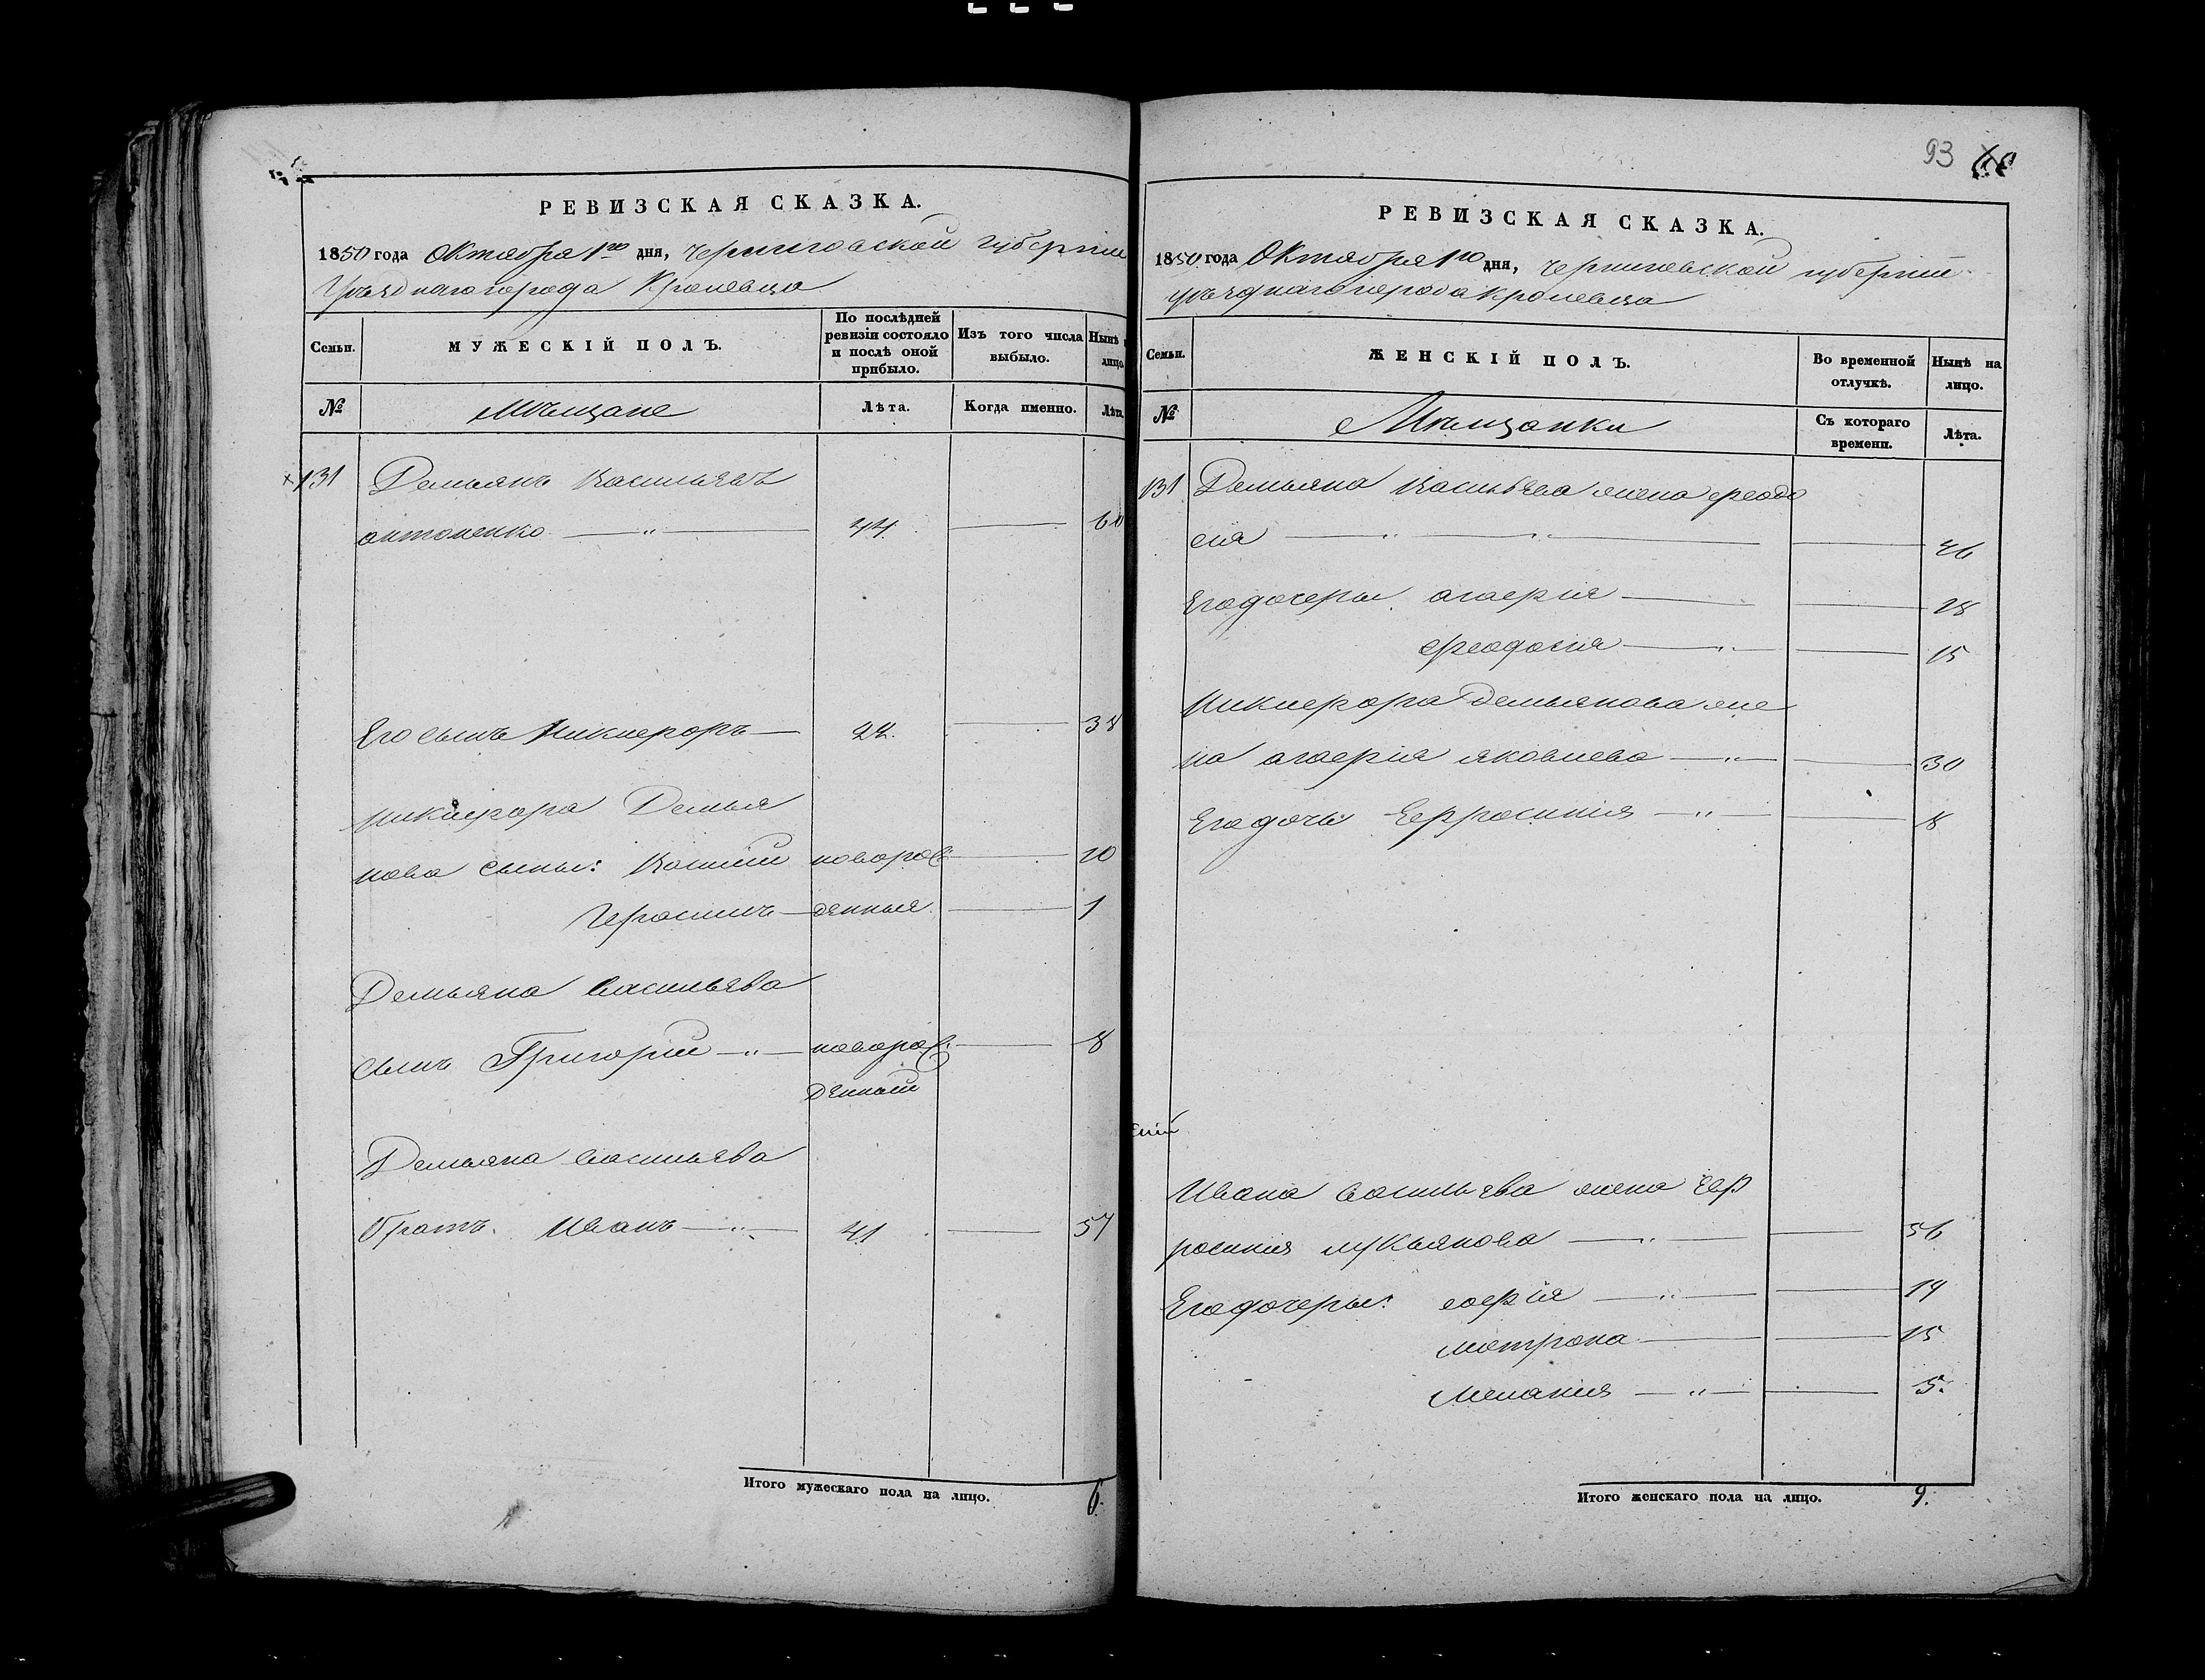 РЕВИЗСКАЯ СКАЗКА.
1850 года Октября 1го дня, Черниговской губерніи
Уѣзднаго города Кролевца
Семьи.
МУЖЕСКІЙ ПОЛЪ.
По послѣдней
ревизіи состояло
и послѣ оной
прибыло.
Изъ того числа
выбыло.
Нынѣ
лицо
№
Мѣщане
Лѣта.
Когда именно.
Лѣта.
131 Демьянъ Васильевъ
антоненко — " — 44 — 60
Его сынъ Никифоръ — 22. — 38
Никифора Демья
нова сыны: Василій новорож — 10
Герасимъ — денные. — 1
Демьяна Васильева
сынъ Григорій — " — новорож — 8
денный
Демьяна Васильева
братъ. Иванъ — " — 41 — 57
Итого мужескаго пола на лицо. 6.
93
РЕВИЗСКАЯ СКАЗКА.
1850 года Октября 1го дня, Черниговской губерніи
уѣзднаго города Кролевца
Семьи.
ЖЕНСКІЙ ПОЛЪ.
Во временной
отлучкѣ.
Нынѣ на
лицо.
№
Мѣщанки
Съ котораго
времени.
Лѣта.
131 Демьяна Васильева жена феодо
сія — " — " — 46
Его дочери агафія — — 18
феодосія — " — — 15
Никифора Демьянова же
на агафія яковлева — " — — 30
Его дочь Ефросинія — " — — 8
Ивана Васильева жена Еф
росинія лукьянова — " — — 56
Его дочери: софія — " — — 19
матрона — — 15
меланія — " — — 5.
Итого женскаго пола на лицо. 9.